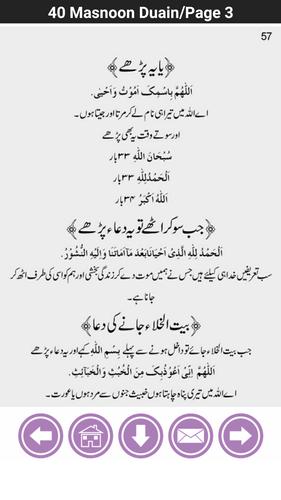 40 Masnoon Duain/Page 3
57
﴿یا یہ پڑھے﴾
اَللّٰهُمَّ بِاسْمِكَ اَمُوْتُ وَاَحْيٰى.
اے اللہ میں تیرا ہی نام لے کر مرتا اور جیتا ہوں۔
اور سوتے وقت یہ بھی پڑھے
سُبْحَانَ اللهِ ۳۳ بار
اَلْحَمْدُلِلّٰهِ ۳۳ بار
اَللهُ اَكْبَرُ ۳۴ بار
﴿جب سو کر اٹھے تو یہ دعاء پڑھے﴾
اَلْحَمْدُ لِلّٰهِ الَّذِىْ اَحْيَانَا بَعْدَ مَآ اَمَاتَنَا وَاِلَيْهِ النُّشُوْرُ.
سب تعریفیں خدا ہی کیلئے ہیں جس نے ہمیں موت دے کر زندگی بخشی اور ہم کو اسی کی طرف اٹھ کر
جانا ہے۔
﴿بیت الخلاء جانے کی دعا﴾
جب بیت الخلاء جائے تو داخل ہونے سے پہلے بِسْمِ اللهِ کہے اور یہ دعاء پڑھے
اَللّٰهُمَّ اِنِّىْ اَعُوْذُبِكَ مِنَ الْخُبُثِ وَالْخَبَائِثِ.
اے اللہ میں تیری پناہ چاہتا ہوں خبیث جنوں سے مرد ہوں یا عورت۔